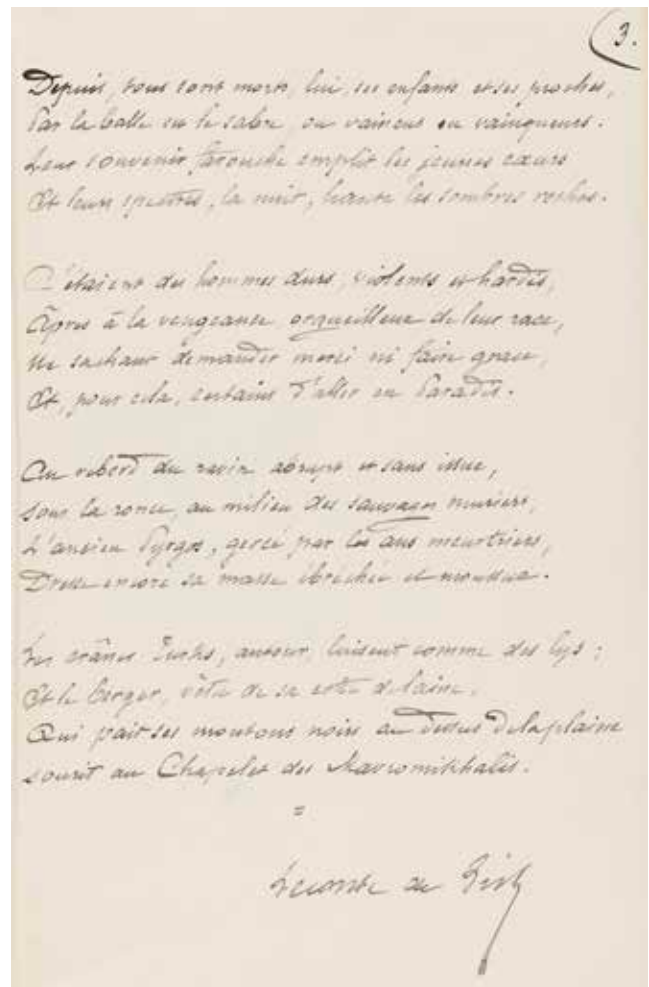 3.
Depuis, tous sont morts, lui, ses enfants et ses proches,
Par la balle ou le sabre, ou vaincus ou vainqueurs.
Leur souvenir farouche emplit les jeunes cœurs
Et leurs spectres, la nuit, hante les sombres roches.
C'étaient des hommes durs, violents et hardis,
Âpres à la vengeance, orgueilleux de leur race,
Ne sachant demander merci ni faire grâce,
Et, pour cela, certains d'aller en Paradis.
Au rebord du ravin abrupt et sans issue,
sous la ronce, au milieu des sauvages mûriers,
L'ancien Pyrgos, gercé par les ans meurtriers,
Dresse encore sa masse ébréchée et moussue.
Les crânes Turks, autour, luisent comme des lys ;
Et le berger, vêtu de sa cotte de laine,
Qui paît ses moutons noirs au dessus de la plaine
sourit au Chapelet des Mavromikhalis.
=
Leconte de Lisle